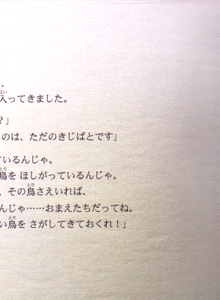 、
入ってきました。
？」
のは、ただのきじばとです」
ているんじゃ。
鳥を ほしがっているんじゃ。
、その鳥さえいれば、
んじゃ……おまえたちだってね。
い鳥を さがしてきておくれ！」